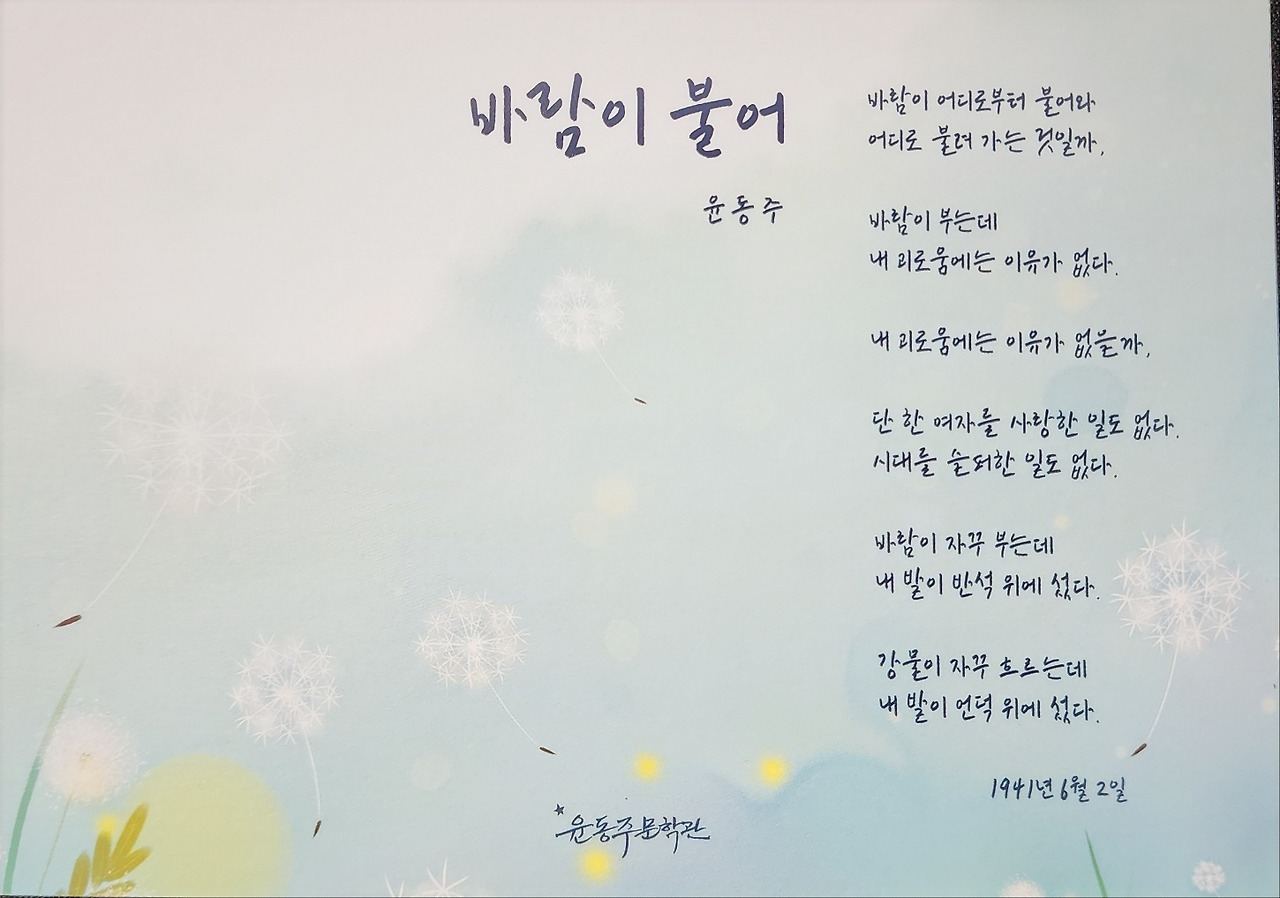 바람이 불어
윤동주
바람이 어디로부터 불어와
어디로 불려 가는 것일까,
바람이 부는데
내 괴로움에는 이유가 없다.
내 괴로움에는 이유가 없을까,
단 한 여자를 사랑한 일도 없다.
시대를 슬퍼한 일도 없다.
바람이 자꾸 부는데
내 발이 반석 위에 섰다.
강물이 자꾸 흐르는데
내 발이 언덕 위에 섰다.
1941년 6월 2일
윤동주문학관